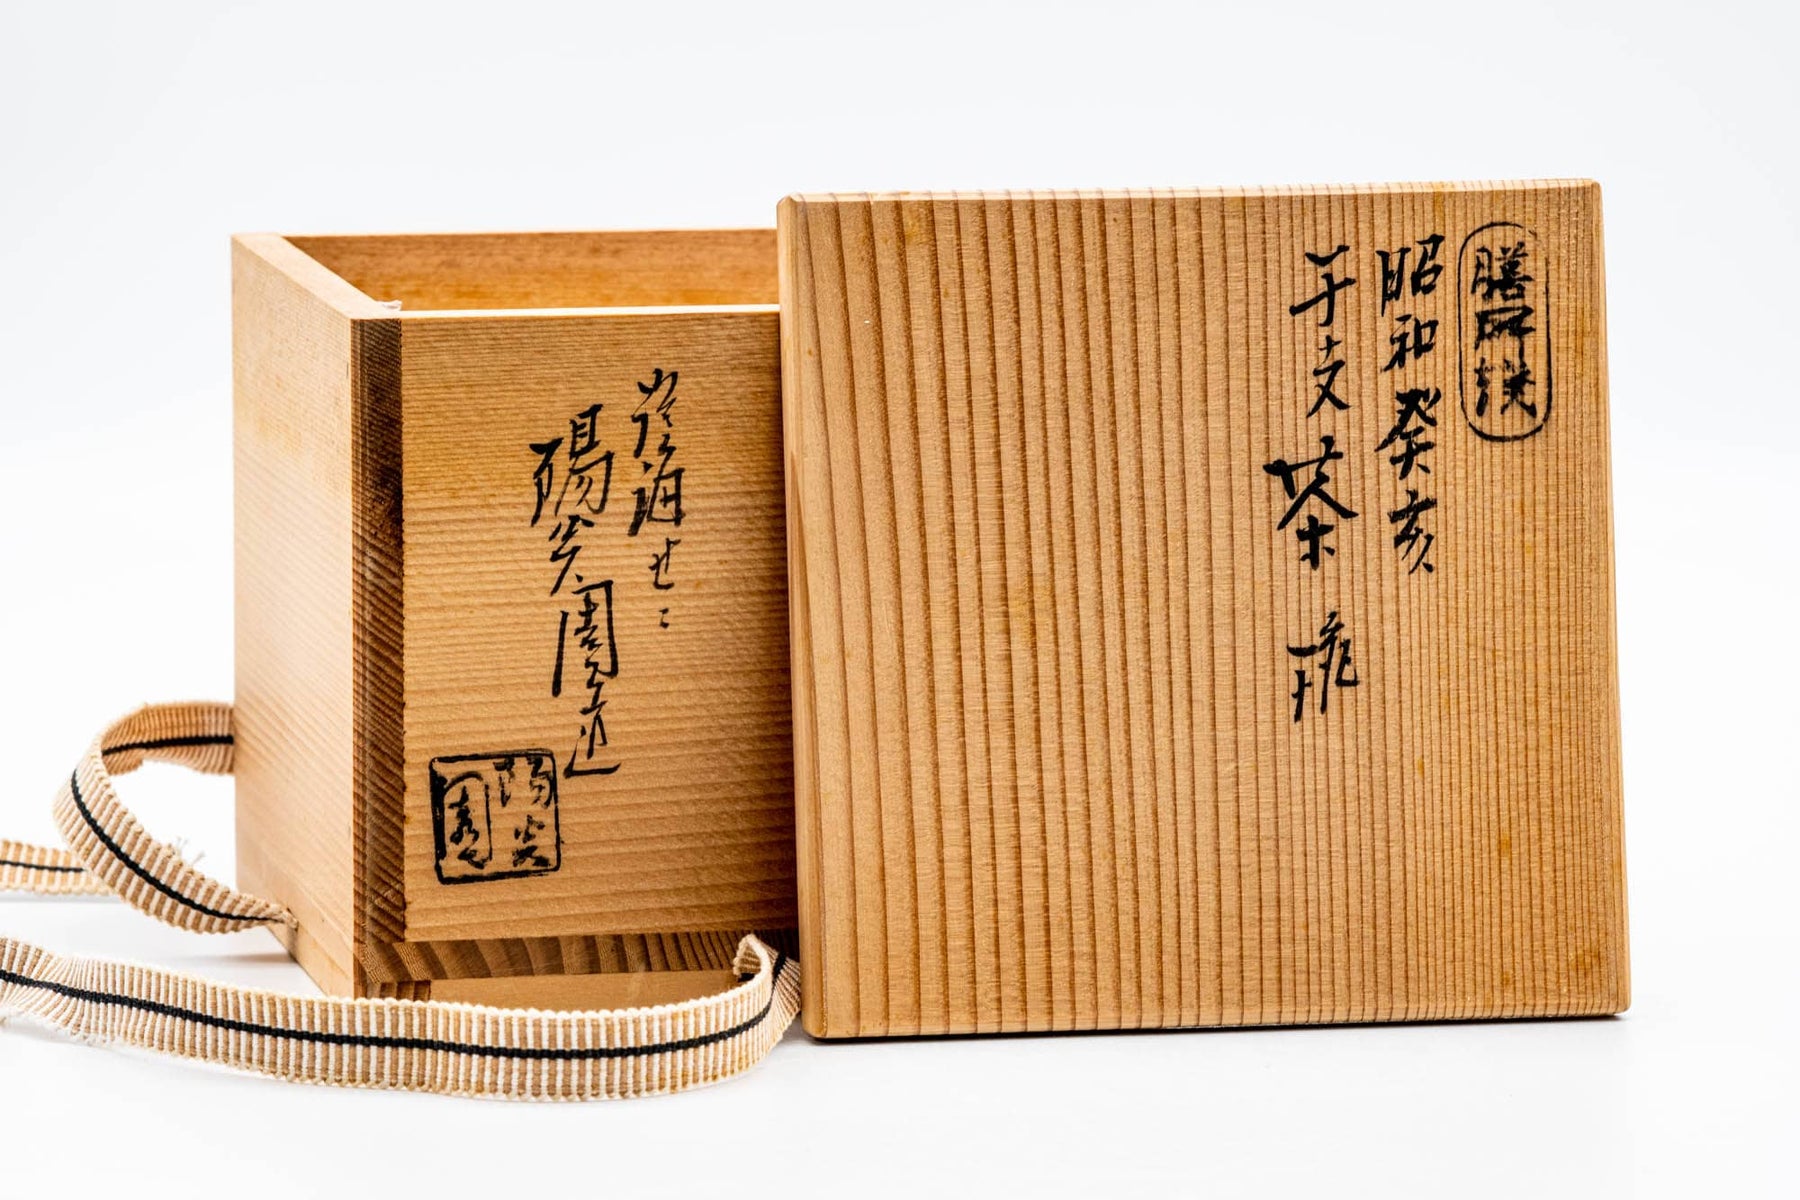 膳所焼
昭和癸亥
干支茶碗
海せゝ
陽炎園造
陽炎
園